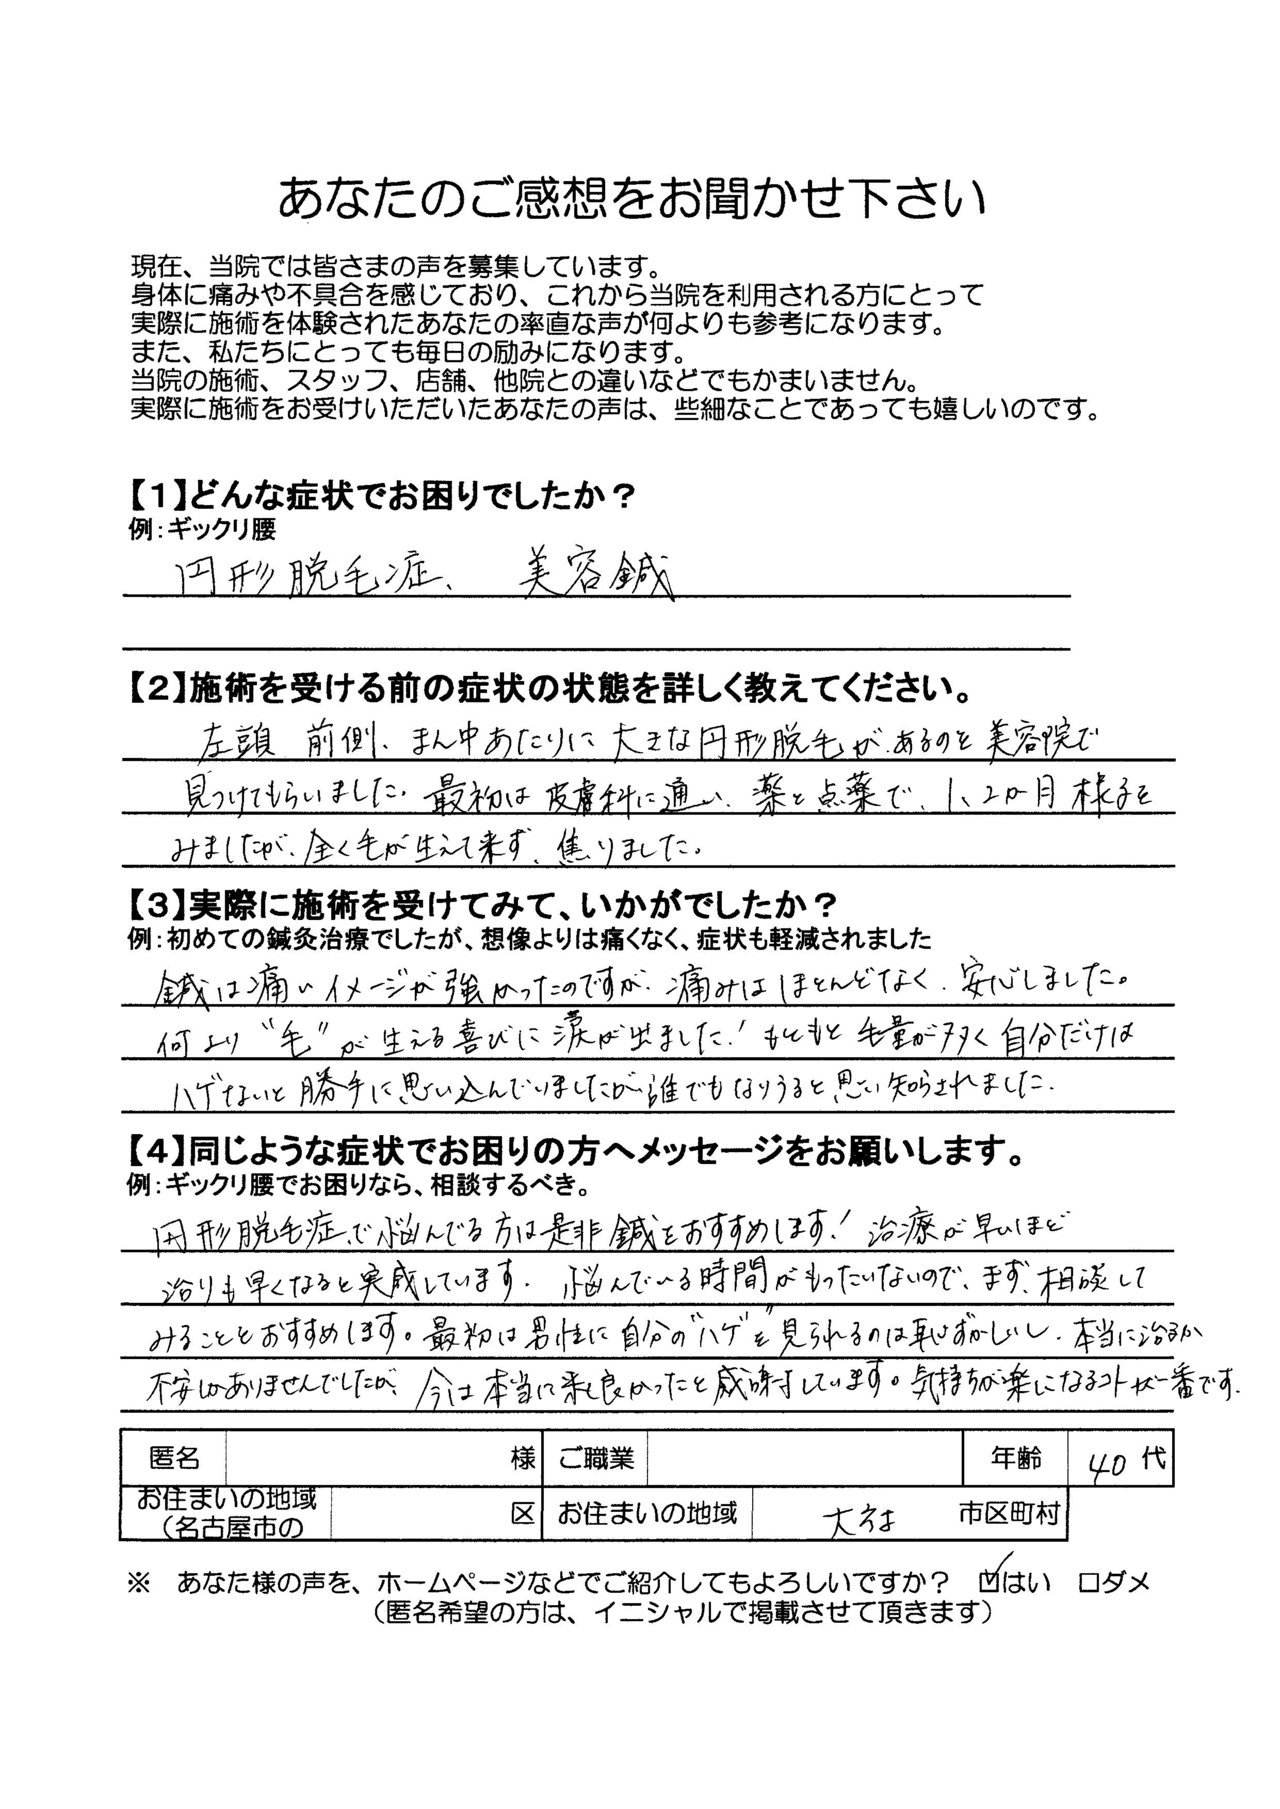 あなたのご感想をお聞かせ下さい
現在、当院では皆さまの声を募集しています。
身体に痛みや不具合を感じており、これから当院を利用される方にとって
実際に施術を体験されたあなたの率直な声が何よりも参考になります。
また、私たちにとっても毎日の励みになります。
当院の施術、スタッフ、店舗、他院との違いなどでもかまいません。
実際に施術をお受けいただいたあなたの声は、些細なことであっても嬉しいのです。
【1】どんな症状でお困りでしたか？
例：ギックリ腰
円形脱毛症、 美容鍼
【2】施術を受ける前の症状の状態を詳しく教えてください。
左頭 前側、まん中あたりに大きな円形脱毛があるのを美容院で
見つけてもらいました。最初は皮膚科に通い、薬と点薬で、1、2か月様子を
みましたが、全く毛が生えて来ず、焦りました。
【3】実際に施術を受けてみて、いかがでしたか？
例：初めての鍼灸治療でしたが、想像よりは痛くなく、症状も軽減されました
鍼は痛いイメージが強かったのですが、痛みはほとんどなく、安心しました。
何より“毛”が生える喜びに涙が出ました！もともと毛量が多く自分だけは
ハゲないと勝手に思い込んでいましたが誰でもなりうると思い知らされました。
【4】同じような症状でお困りの方へメッセージをお願いします。
例：ギックリ腰でお困りなら、相談するべき。
円形脱毛症で悩んでる方は是非鍼をおすすめします！治療が早いほど
治りも早くなると実感しています。悩んでいる時間がもったいないので、まず、相談して
みることをおすすめします。最初は男性に自分の“ハゲ”を見られるのは恥ずかしいし、本当に治るか
不安しかありませんでしたが、今は本当に来て良かったと感謝しています。気持ちが楽になるコトが一番です。
匿名 様 ご職業 年齢 40 代
お住まいの地域（名古屋市の 区 お住まいの地域 大府 市区町村
※ あなた様の声を、ホームページなどでご紹介してもよろしいですか？ ☑はい □ダメ
（匿名希望の方は、イニシャルで掲載させて頂きます）